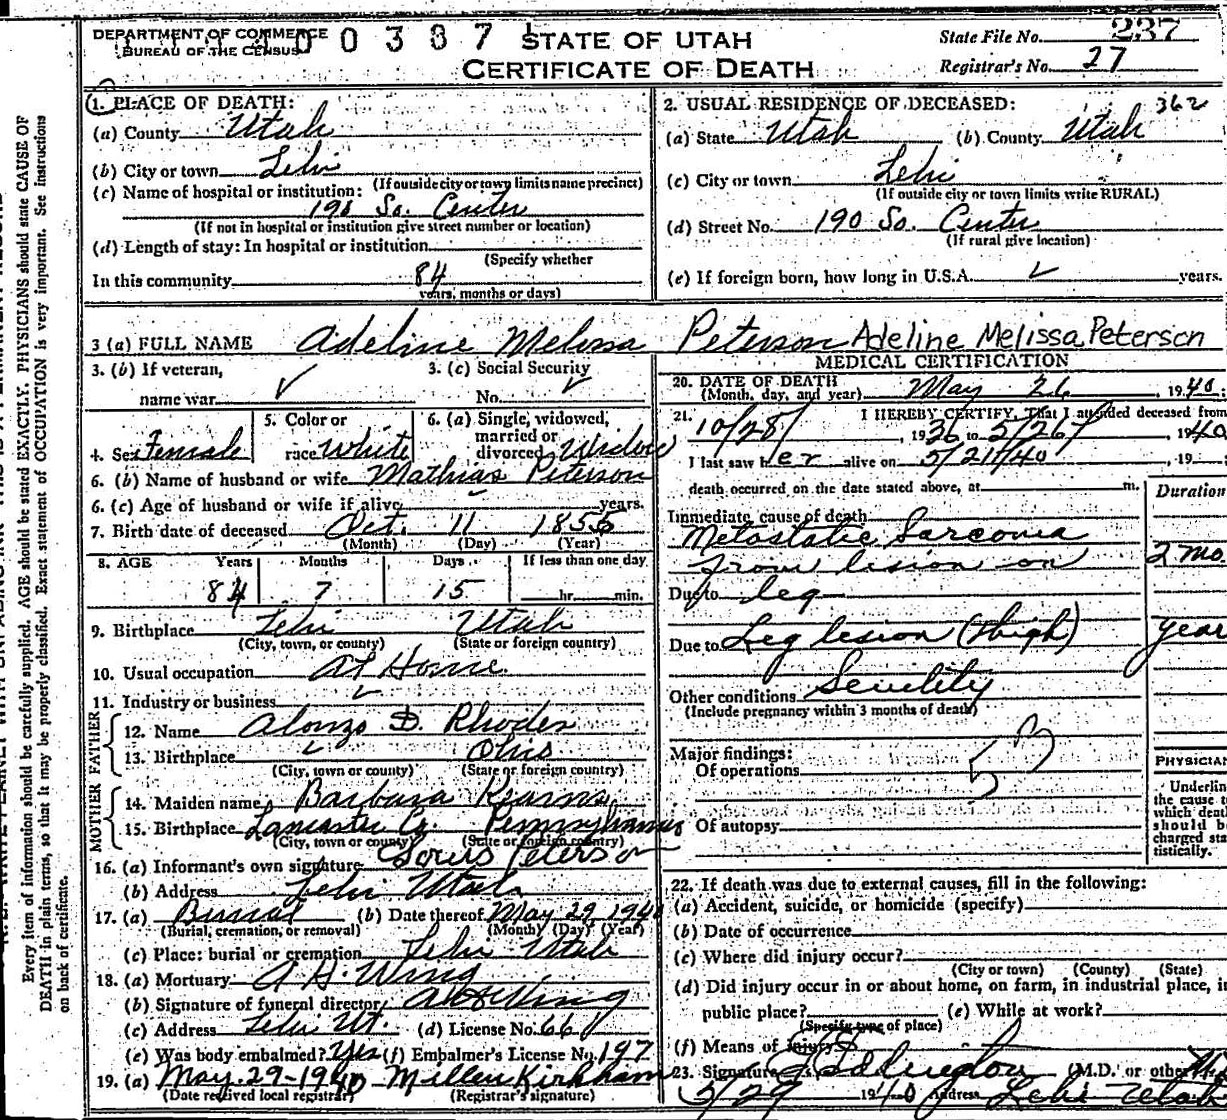 DEPARTMENT OF COMMERCE
BUREAU OF THE CENSUS
0 0 3 8 7
STATE OF UTAH
CERTIFICATE OF DEATH
State File No. 237
Registrar's No. 27
1. PLACE OF DEATH:
(a) County Utah
(b) City or town Lehi
(If outside city or town limits name precinct)
(c) Name of hospital or institution:
190 So. Center
(If not in hospital or institution give street number or location)
(d) Length of stay: In hospital or institution
(Specify whether
In this community 84
years, months or days)
2. USUAL RESIDENCE OF DECEASED: 362
(a) State Utah (b) County Utah
(c) City or town Lehi
(If outside city or town limits write RURAL)
(d) Street No. 190 So. Center
(If rural give location)
(e) If foreign born, how long in U.S.A. ✓ years.
3 (a) FULL NAME Adeline Melissa Peterson Adeline Melissa Peterson
3. (b) If veteran,
name war ✓
3. (c) Social Security
No. ✓
4. Sex Female
5. Color or
race White
6. (a) Single, widowed,
married or
divorced Widow
6. (b) Name of husband or wife Mathias Peterson
6. (c) Age of husband or wife if alive years.
7. Birth date of deceased Oct. 11 1855
(Month) (Day) (Year)
8. AGE Years Months Days If less than one day
84 7 15 hr. min.
9. Birthplace Lehi Utah
(City, town, or county) (State or foreign country)
10. Usual occupation at Home
11. Industry or business ✓
FATHER
12. Name Alonzo D. Rhodes
13. Birthplace ✓ Ohio
(City, town or county) (State or foreign country)
MOTHER
14. Maiden name Barbara Kearns
15. Birthplace Lancaster Co. Pennsylvania
(City, town or county) (State or foreign country)
16. (a) Informant's own signature Peterson
(b) Address Lehi Utah
17. (a) Burial (b) Date thereof May 29 1940
(Burial, cremation, or removal) (Month) (Day) (Year)
(c) Place: burial or cremation Lehi Utah
18. (a) Mortuary A H. Wing
(b) Signature of funeral director A H Wing
(c) Address Lehi Ut. (d) License No. 66
(e) Was body embalmed? Yes (f) Embalmer's License No. 197
19. (a) May 29-1940 Millen Kirkham
(Date received local registrar) (Registrar's signature)
MEDICAL CERTIFICATION
20. DATE OF DEATH
(Month, day, and year) May 26, 1940
21. I HEREBY CERTIFY, That I attended deceased from
10/28, 1936 to 5/26, 1940
I last saw her alive on 5/21/40, 19
death occurred on the date stated above, at m.
Duration
Immediate cause of death
Metastatic Sarcoma
from lesion on 2 mo.
Due to leg
Due to Leg lesion (thigh) year
Other conditions Senility
(Include pregnancy within 3 months of death)
Major findings:
Of operations
53
Of autopsy
PHYSICIAN
Underline
the cause
which death
should be
charged sta
tistically.
22. If death was due to external causes, fill in the following:
(a) Accident, suicide, or homicide (specify)
(b) Date of occurrence
(c) Where did injury occur?
(City or town) (County) (State)
(d) Did injury occur in or about home, on farm, in industrial place, in
public place? (e) While at work?
(Specify type of place)
(f) Means of injury
23. Signature Eddington (M.D. or other)
5/29 1940 Address Lehi Utah
Every item of information should be carefully supplied. AGE should be stated EXACTLY. PHYSICIANS should state CAUSE OF
DEATH in plain terms, so that it may be properly classified. Exact statement of OCCUPATION is very important. See instructions
on back of certificate.